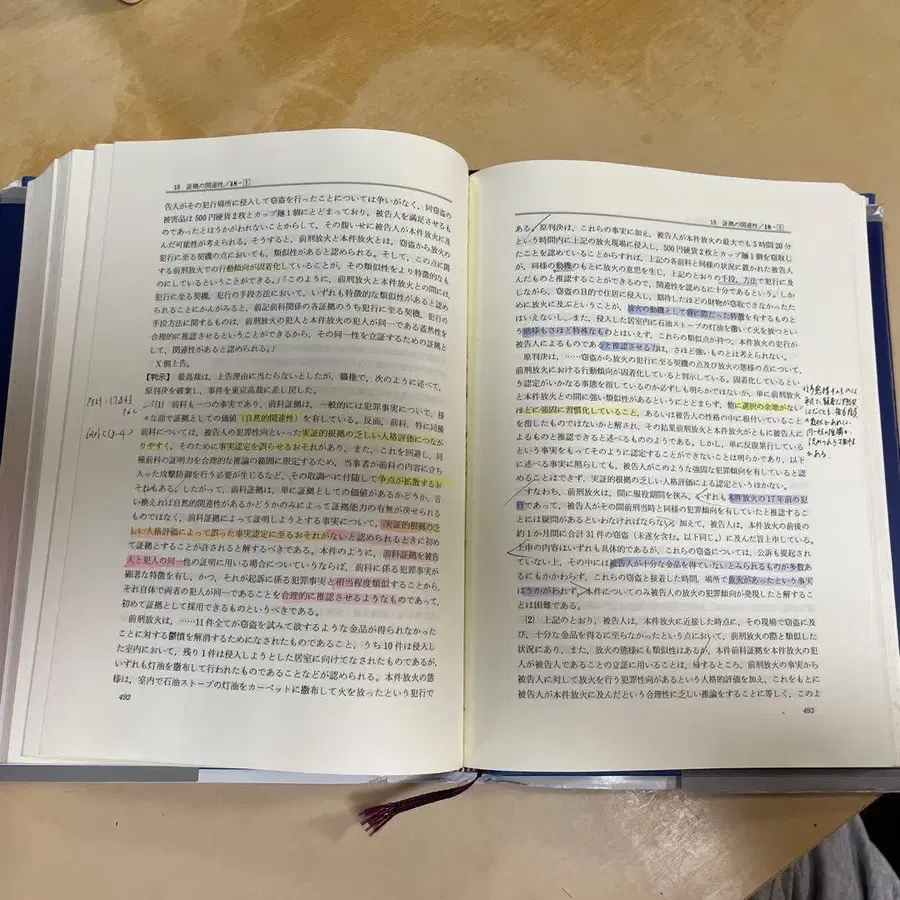 18 証拠の関連性／18-1
告人がその犯行場所に侵入して窃盗を行ったことについては争いがなく，同窃盗の
被害品は500円硬貨2枚とカップ麺1個にとどまっており，被告人を満足させるも
のであったとはうかがわれないことからして，その腹いせに被告人が本件放火に及
んだ可能性が考えられる。そうすると，前刑放火と本件放火とは，窃盗から放火の
犯行に至る契機の点においても，類似性があると認められる。そして，この点に関
する前刑放火での行動傾向が固着化していることが，その類似性をより特徴的なも
のにしているということができる。」「このように，前刑放火と本件放火との間には，
犯行に至る契機，犯行の手段方法において，いずれも特徴的な類似性があると認め
られることにかんがみると，前記前科関係の各証拠のうち犯行に至る契機，犯行の
手段方法に関するものは，前刑放火の犯人と本件放火の犯人が同一である蓋然性を
合理的に推認させるということができるから，その同一性を立証するための証拠と
して，関連性があると認められる。」
X側上告。
【判示】 最高裁は，上告理由に当たらないとしたが，職権で，次のように述べて，
原判決を破棄し，事件を東京高裁に差し戻した。
(1) 前科も一つの事実であり，前科証拠は，一般的には犯罪事実について，様
々な面で証拠としての価値（自然的関連性）を有している。反面，前科，特に同種
前科については，被告人の犯罪性向といった実証的根拠の乏しい人格評価につなが
りやすく，そのために事実認定を誤らせるおそれがあり，また，これを回避し，同
種前科の証明力を合理的な推論の範囲に限定するため，当事者が前科の内容に立ち
入った攻撃防御を行う必要が生じるなど，その取調べに付随して争点が拡散するお
それもある。したがって，前科証拠は，単に証拠としての価値があるかどうか，言
い換えれば自然的関連性があるかどうかのみによって証拠能力の有無が決せられる
ものではなく，前科証拠によって証明しようとする事実について，実証的根拠の乏
しい人格評価によって誤った事実認定に至るおそれがないと認められるときに初め
て証拠とすることが許されると解するべきである。本件のように，前科証拠を被告
人と犯人の同一性の証明に用いる場合についていうならば，前科に係る犯罪事実が
顕著な特徴を有し，かつ，それが起訴に係る犯罪事実と相当程度類似することから，
それ自体で両者の犯人が同一であることを合理的に推認させるようなものであって，
初めて証拠として採用できるものというべきである。
前刑放火は，……11件全てが窃盗を試みて欲するような金品が得られなかった
ことに対する鬱憤を解消するためになされたものであること，うち10件は侵入し
た室内において，残り1件は侵入しようとした居室に向けてなされたものであるが，
いずれも灯油を撒布して行われたものであることなどが認められる。本件放火の態
様は，室内で石油ストーブの灯油をカーペットに撒布して火を放ったという犯行で
492
18 証拠の関連性／18-1
ある。原判決は，これらの事実に加え，被告人が本件放火の最大でも5時間20分
という時間内に上記の放火現場に侵入し，500円硬貨2枚とカップ麺1個を窃取し
たことが認められることからすれば，上記の各前科と同様の状況に置かれた被告人
が，同様の動機のもとに放火の意思を生じ，上記のとおりの手段，方法で犯行に及
んだものと推認することができるので，関連性を認めるに十分であるという。しか
しながら，窃盗の目的で住居に侵入し，期待したほどの財物が窃取できなかったた
めに放火に及ぶということが，放火の動機として特に際だった特徴を有するものと
はいえないし，また，侵入した居室内に石油ストーブの灯油を撒いて火を放つとい
う態様もさほど特殊なものとはいえず，これらの類似点が持つ，本件放火の犯行が
被告人によるものであると推認させる力は，さほど強いものとは考えられない。
原判決は，……窃盗から放火の犯行に至る契機の点及び放火の態様の点について，
前刑放火における行動傾向が固着化していると判示している。固着化しているとい
う認定がいかなる事態を指しているのか必ずしも明らかではないが，単に前刑放火
と本件放火との間に強い類似性があるというにとどまらず，他に選択の余地がない
ほどに強固に習慣化していること，あるいは被告人の性格の中に根付いていること
を指したものではないかと解され，その結果前刑放火と本件放火がともに被告人に
よるものと認定できると述べるもののようである。しかし，単に反復累行している
という事実をもってそのように認定することができないことは明らかであり，以下
に述べる事実に照らしても，被告人がこのような強固な犯罪傾向を有していると認
めることはできず，実証的根拠の乏しい人格評価による認定というほかない。
すなわち，前刑放火は，間に服役期間を挟み，いずれも本件放火の17年前の犯
行であって，被告人がその間前刑当時と同様の犯罪傾向を有していたと推認するこ
とには疑問があるといわなければならない。加えて，被告人は，本件放火の前後の
約1か月間に合計31件の窃盗（未遂を含む。以下同じ。）に及んだ旨上申している。
上申の内容はいずれも具体的であるが，これらの窃盗については，公訴も提起され
ていない上，その中には被告人が十分な金品を得ていないとみられるものも多数あ
るにもかかわらず，これらの窃盗と接着した時間，場所で放火があったという事実
はうかがわれず，本件についてのみ被告人の放火の犯罪傾向が発現したと解するこ
とは困難である。
(2) 上記のとおり，被告人は，本件放火に近接した時点に，その現場で窃盗に及
び，十分な金品を得るに至らなかったという点において，前刑放火の際と類似した
状況にあり，また，放火の態様にも類似性はあるが，本件前科証拠を本件放火の犯
人が被告人であることの立証に用いることは，帰するところ，前刑放火の事実から
被告人に対して放火を行う犯罪性向があるという人格的評価を加え，これをもとに
被告人が本件放火に及んだという合理性に乏しい推論をすることに等しく，このよ
493